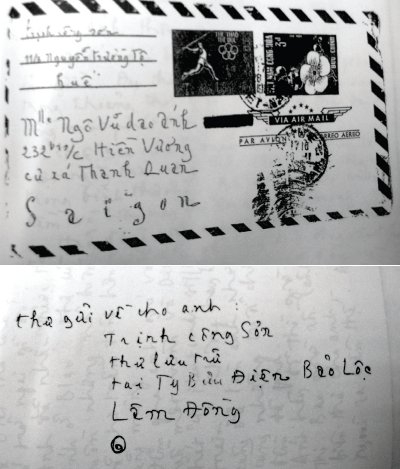 Nguyễn Trường Tộ
Huế
THỂ THAO
THẾ GIỚI
VIỆT NAM CỘNG HÒA
BƯU CHÍNH
Mlle Ngô Vũ dao ánh
Hiền Vương
cư xá Thanh Quan
Saigon
VIA AIR MAIL
PAR AVION CORREO AEREO
thư gửi về cho anh :
Trịnh công Sơn
thư lưu trữ
tại Ty Bưu Điện Bảo Lộc
Lâm Đồng